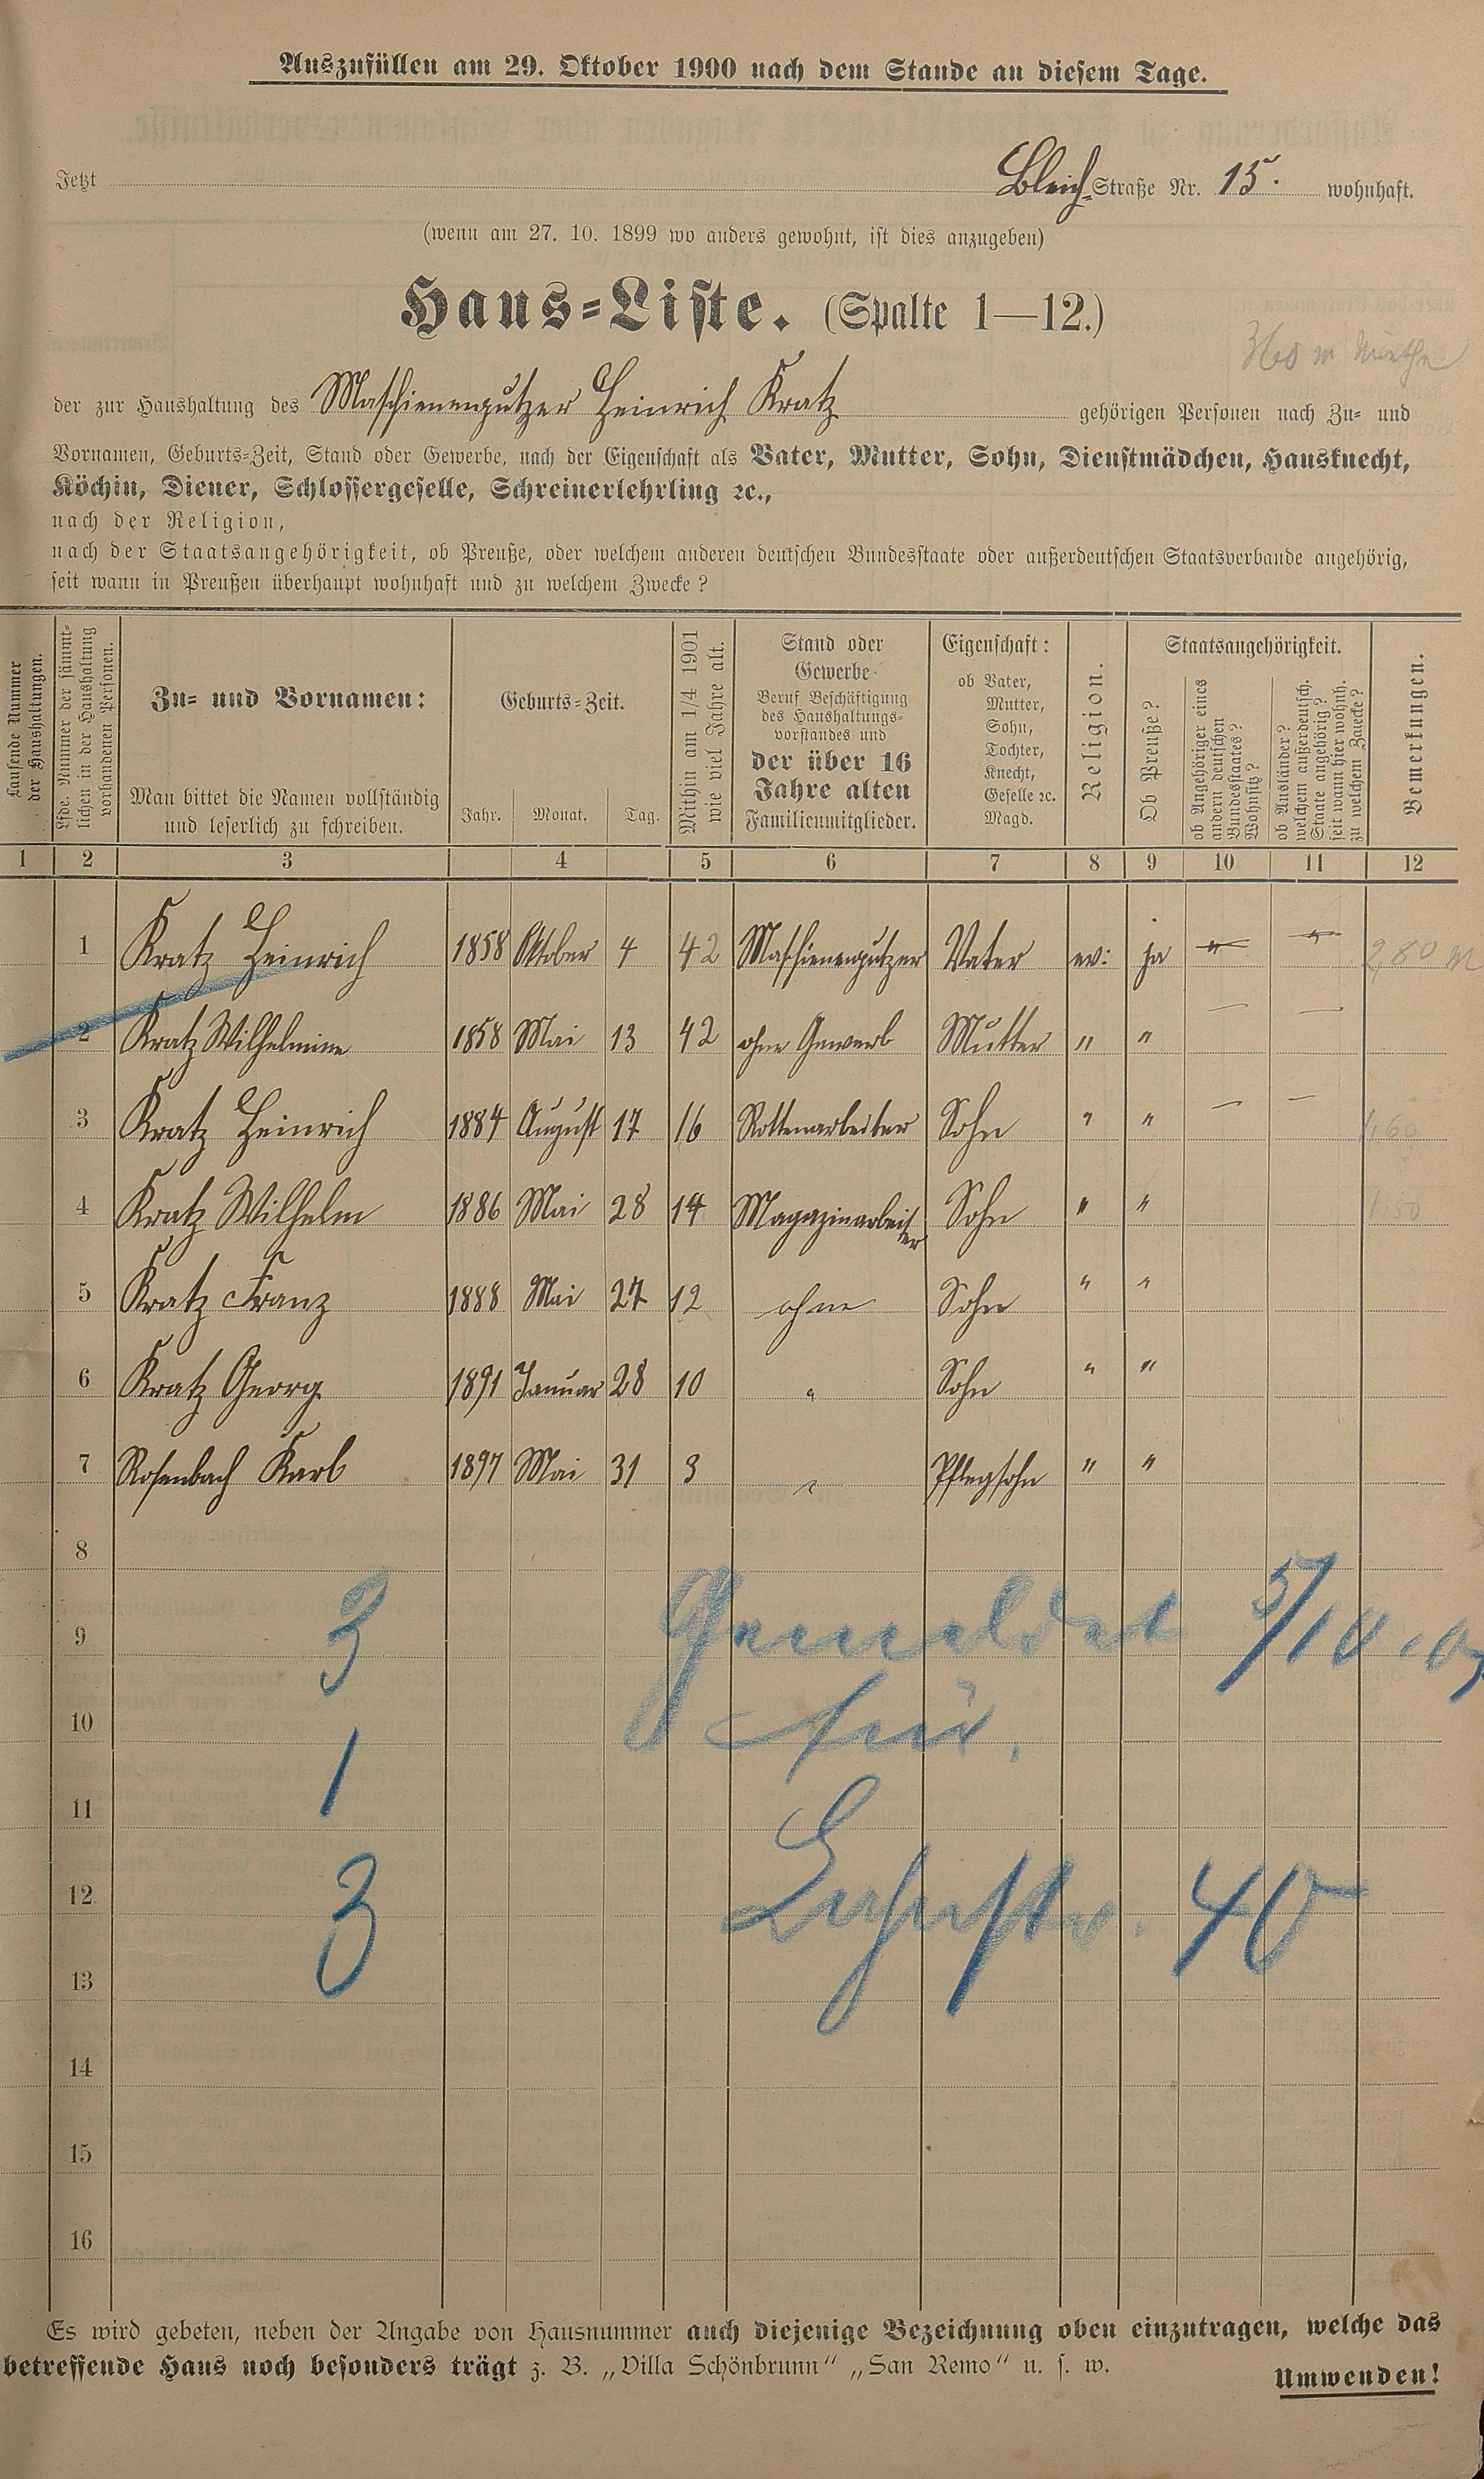 Auszufüllen am 29. Oktober 1900 nach dem Stande an diesem Tage.
Jetzt Bleich-Straße Nr. 15. wohnhaft.
(wenn am 27. 10. 1899 wo anders gewohnt, ist dies anzugeben)
Haus-Liste. (Spalte 1—12.)
360 m Miethe
der zur Haushaltung des Maschienenputzer Heinrich Kratz gehörigen Personen nach Zu- und
Vornamen, Geburts-Zeit, Stand oder Gewerbe, nach der Eigenschaft als Vater, Mutter, Sohn, Dienstmädchen, Hausknecht,
Köchin, Diener, Schlossergeselle, Schreinerlehrling ꝛc.,
nach der Religion,
nach der Staatsangehörigkeit, ob Preuße, oder welchem anderen deutschen Bundesstaate oder außerdeutschen Staatsverbande angehörig,
seit wann in Preußen überhaupt wohnhaft und zu welchem Zwecke?
Laufende Nummer
der Haushaltungen.
Lfde. Nummer der sämmt-
lichen in der Haushaltung
vorhandenen Personen.
Zu- und Vornamen:
Man bittet die Namen vollständig
und leserlich zu schreiben.
Geburts-Zeit.
Jahr. Monat. Tag.
Mithin am 1/4 1901
wie viel Jahre alt.
Stand oder
Gewerbe
Beruf Beschäftigung
des Haushaltungs-
vorstandes und
der über 16
Jahre alten
Familienmitglieder.
Eigenschaft:
ob Vater,
Mutter,
Sohn,
Tochter,
Knecht,
Geselle ꝛc.
Magd.
Religion.
Staatsangehörigkeit.
Ob Preuße?
ob Angehöriger eines
andern deutschen
Bundesstaates?
Wohnsitz?
ob Ausländer?
welchem außerdeutsch.
Staate angehörig?
seit wann hier wohnh.
zu welchem Zwecke?
Bemerkungen.
1 2 3 4 5 6 7 8 9 10 11 12
1 Kratz Heinrich 1858 Oktober 4 42 Maschienenputzer Vater ev: ja 2,80 M
2 Kratz Wilhelmine 1858 Mai 13 42 ohne Gewerb Mutter " " — —
3 Kratz Heinrich 1884 August 17 16 Rottenarbeiter Sohn " " — — 1,60
4 Kratz Wilhelm 1886 Mai 28 14 Magazinarbeiter Sohn " " 1.50
5 Kratz Franz 1888 Mai 27 12 ohne Sohn " "
6 Kratz Georg 1891 Januar 28 10 " Sohn " "
7 Rosenbach Karl 1897 Mai 31 3 " Pflegsohn " "
8
9 3 Gemeldet 5/10.
10
11 1
12 3 40
13
14
15
16
Es wird gebeten, neben der Angabe von Hausnummer auch diejenige Bezeichnung oben einzutragen, welche das
betreffende Haus noch besonders trägt z. B. „Villa Schönbrunn“ „San Remo“ u. s. w.
Umwenden!